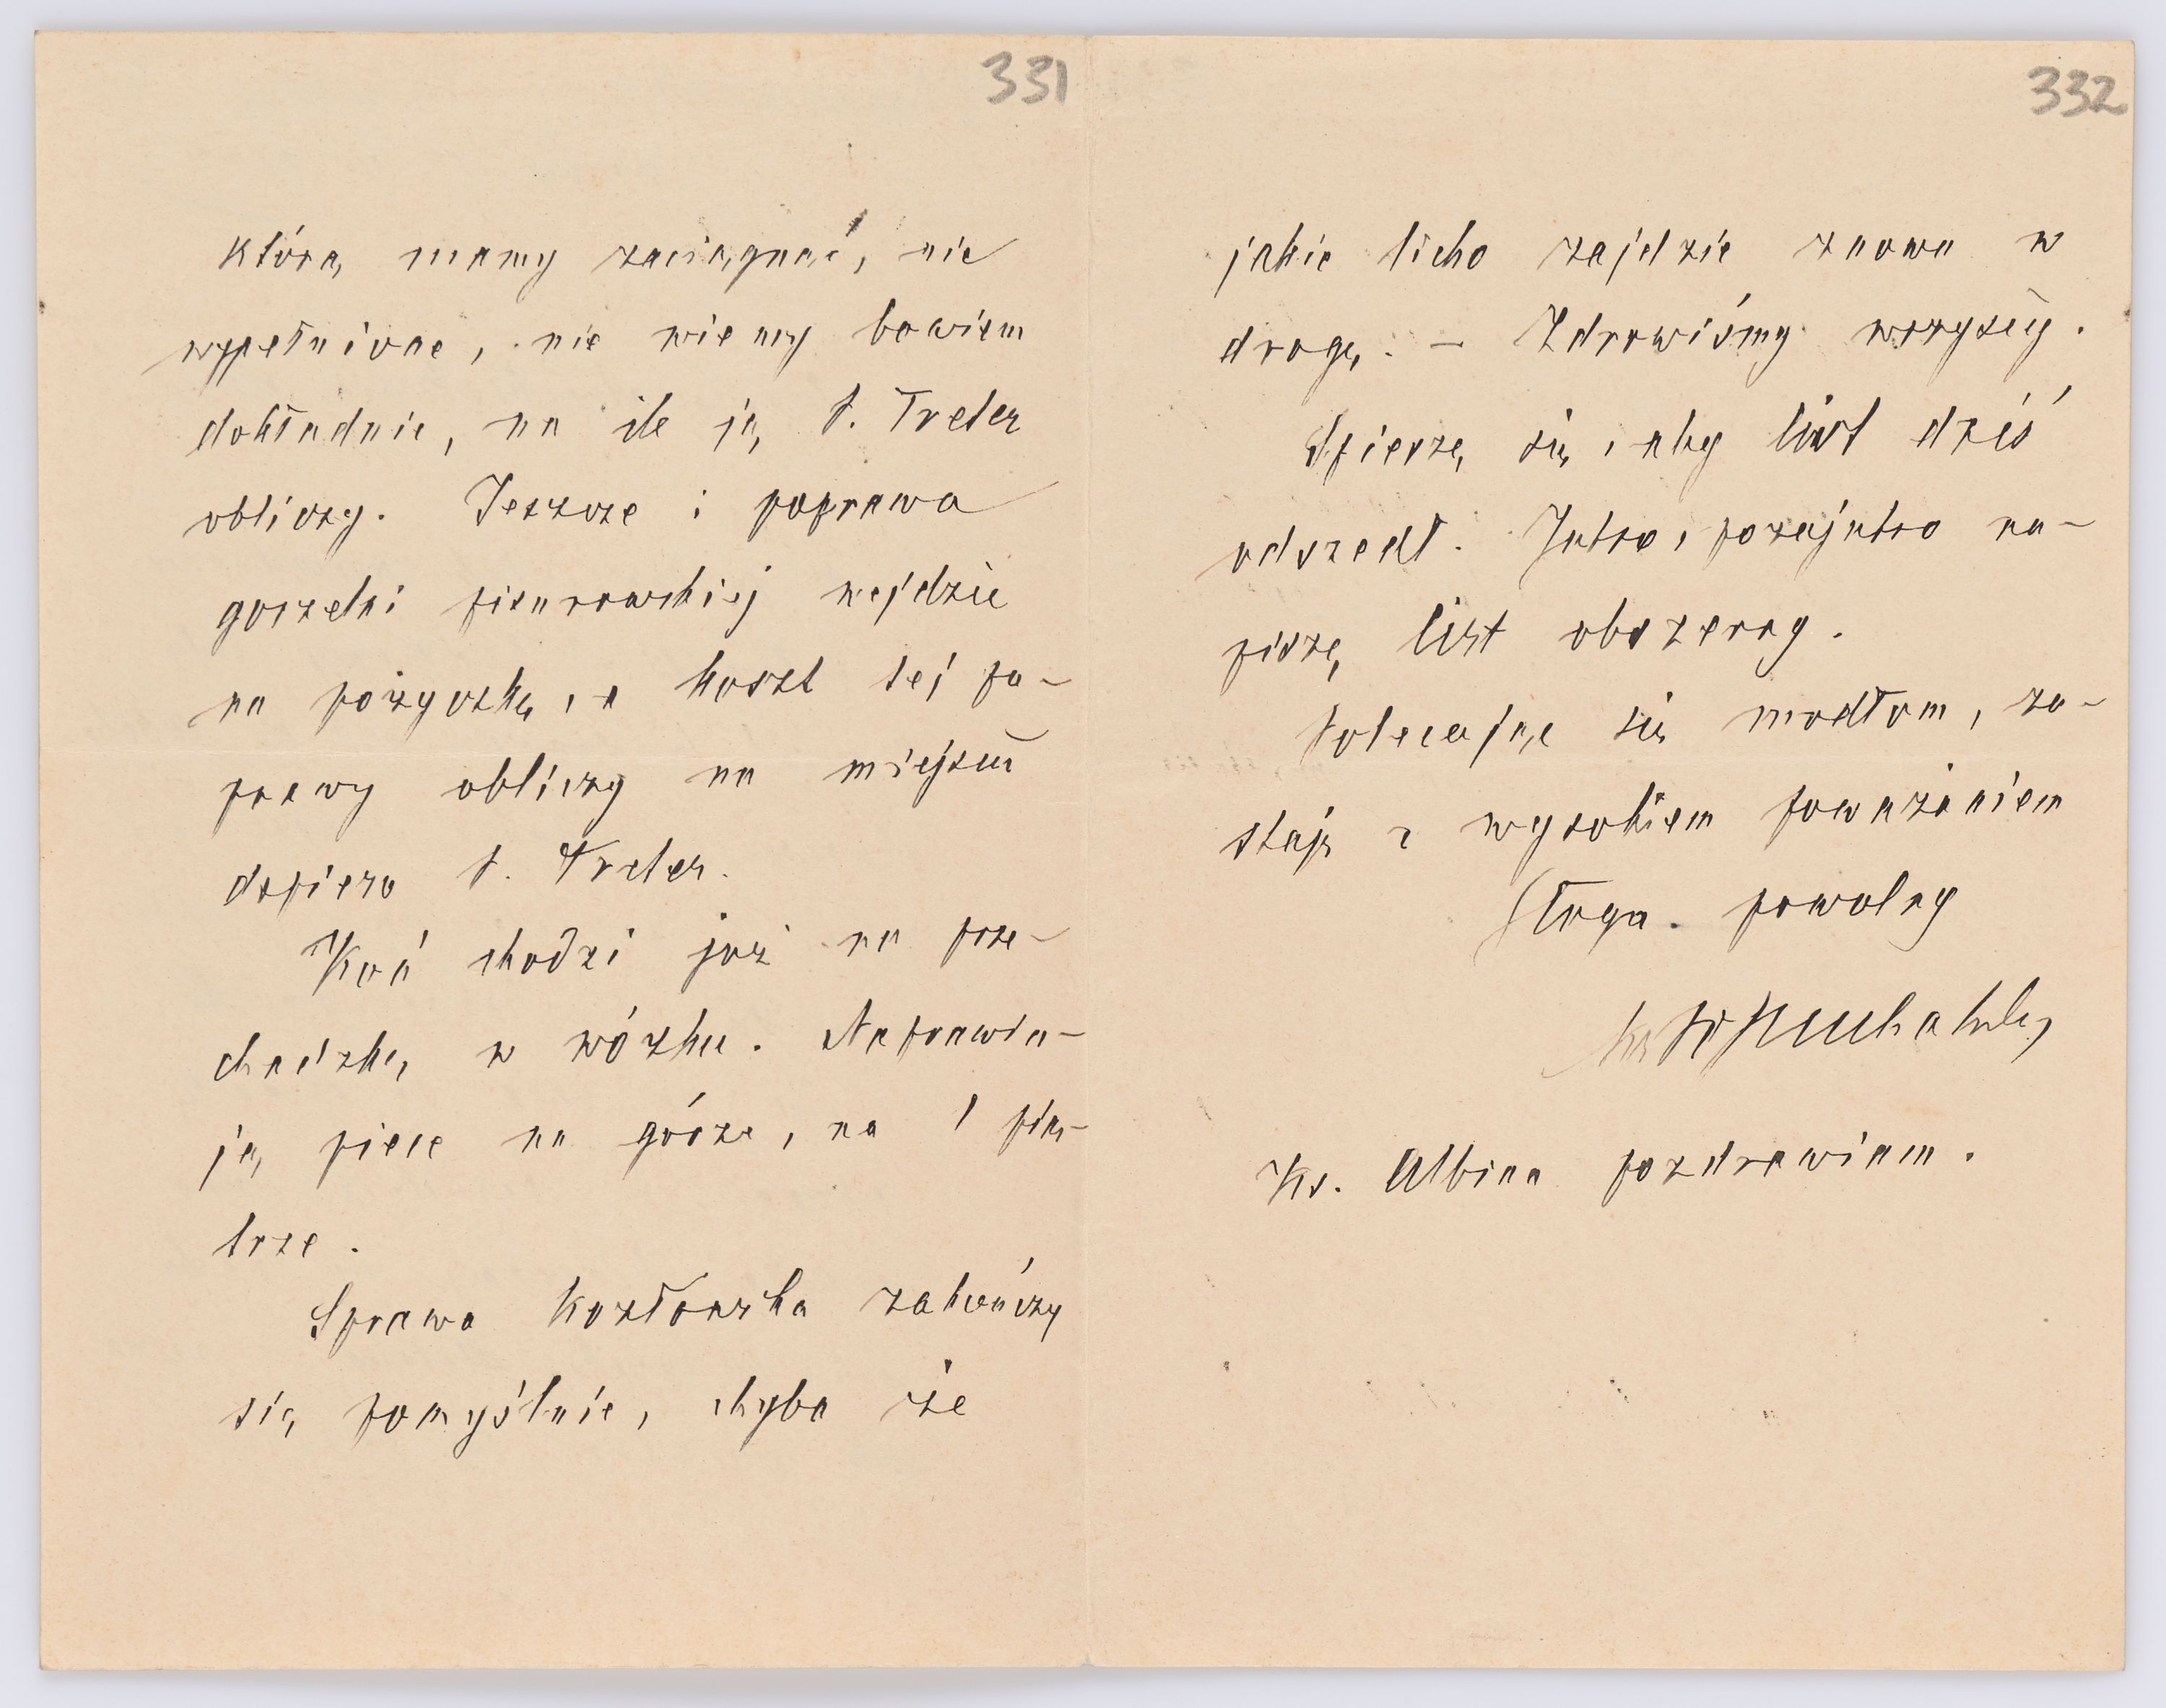 331
którą mamy zaciągnąć, nie
wypełnione, nie wiemy bowiem
dokładnie, na ile ją P. Treter
obliczy. Jeszcze i poprawa
gorzelni pisarowskiej wejdzie
na pożyczkę, a koszt tej po-
prawy obliczy na miejscu
dopiero P. Treter.
Koń chodzi już na prze-
chadzkę w wózku. Naprawia-
ją piece na górze, na I pię-
trze.
Sprawa Kozłowska zakończy
się pomyślnie, chyba że
332
jakie licho zajdzie znowu w
drogę. – Zdrowiśmy wszyscy.
Spieszę się, aby list dziś
odszedł. Jutro, pozajutro na-
piszę list obszerny.
Polecając się modłom, zo-
staję z wysokiem poważaniem
Sługa powolny
Ks. Albina pozdrawiam.